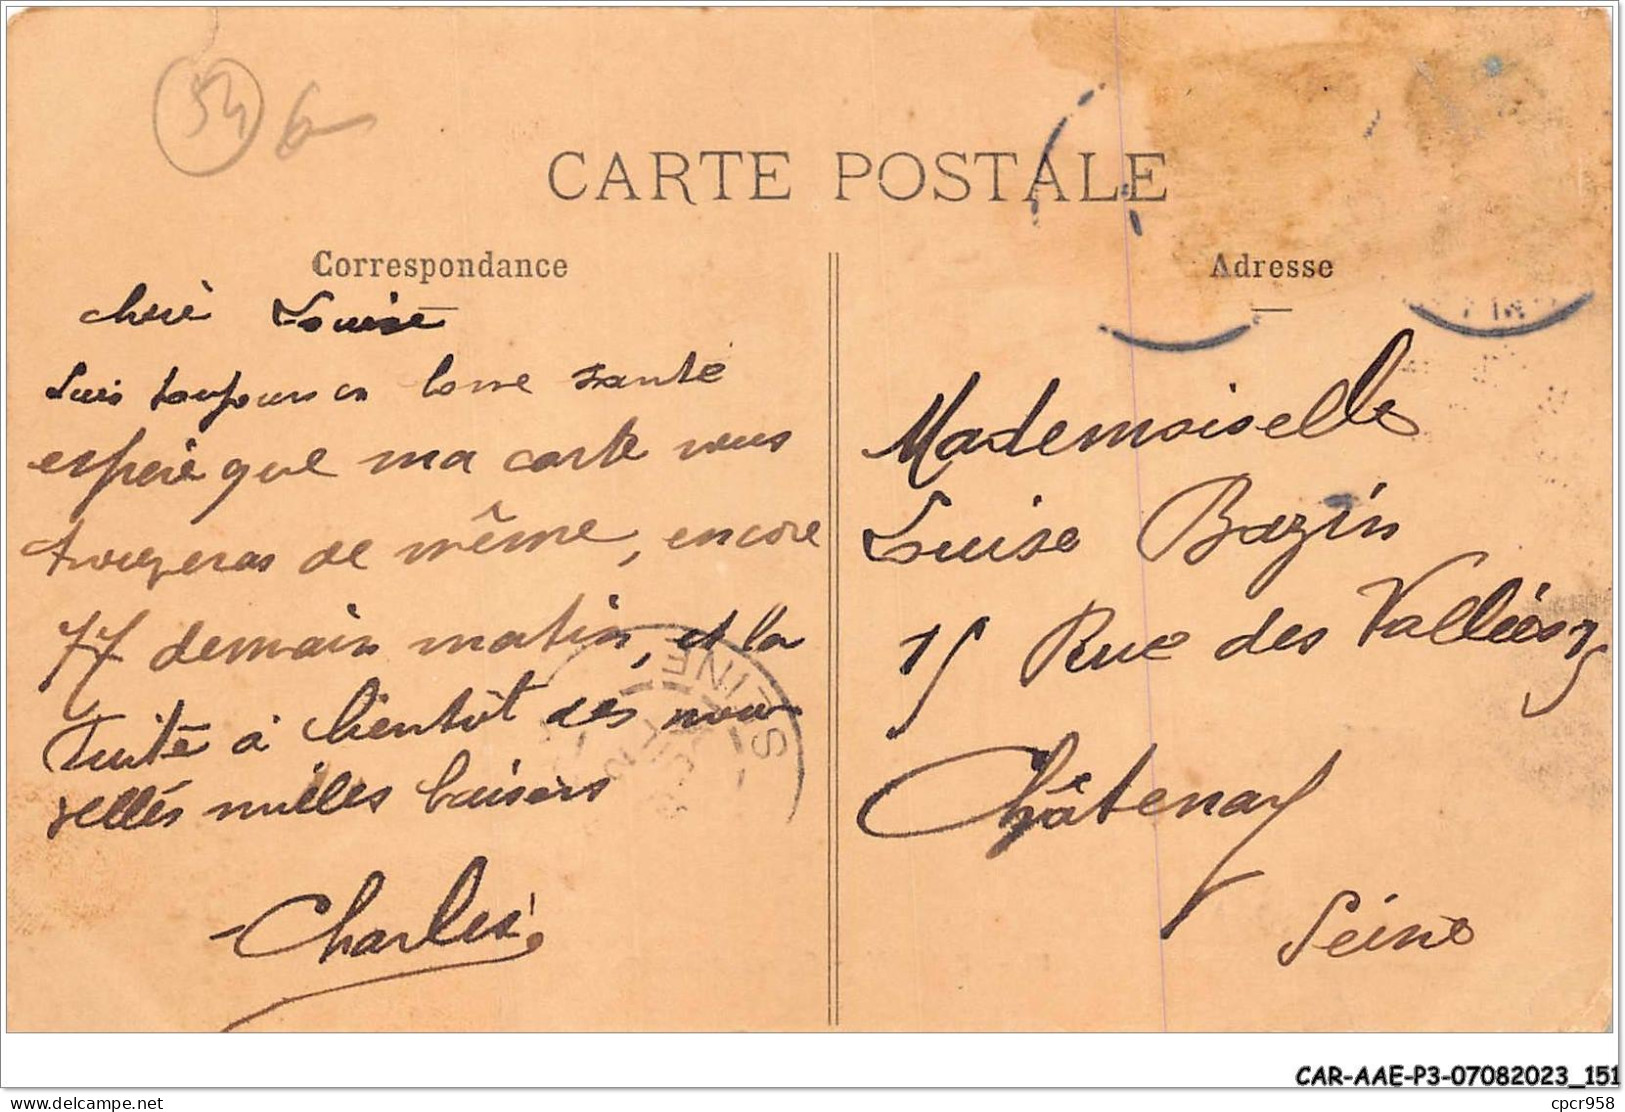 54 6
CARTE POSTALE
Correspondance
Adresse
cherè Louise
Suis toujours en bonne santé
espère que ma carte vous
trouveras de même, encore
77 demain matin, et la
fuite à bientôt des nou-
vellés milles baisers
Charles
Mademoiselle
Louise Bazin
15 Rue des Vallées
Châtenay
Seine
SEINE
CAR-AAE-P3-07082023_151
delcampe.net
cpcr958